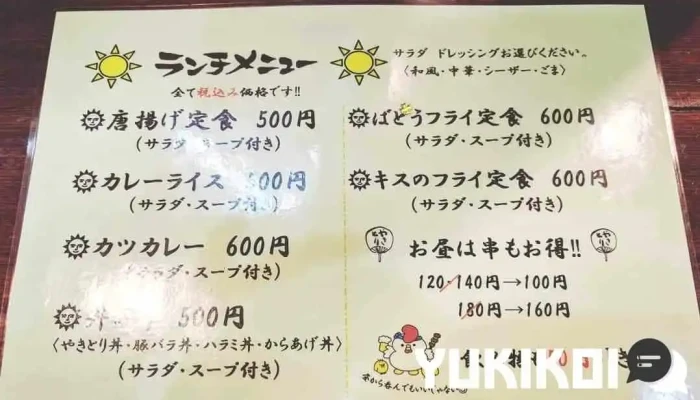 ランチメニュー
全て税込み価格です!!
サラダ ドレッシングお選びください。
〈和風・中華・シーザー・ごま〉
唐揚げ定食 500円
(サラダ・スープ付き)
カレーライス 500円
(サラダ・スープ付き)
カツカレー 600円
(サラダ・スープ付き)
丼 500円
〈やきとり丼・豚バラ丼・ハラミ丼・からあげ丼〉
(サラダ・スープ付き)
ばとうフライ定食 600円
(サラダ・スープ付き)
キスのフライ定食 600円
(サラダ・スープ付き)
お昼は串もお得!!
120・140円→100円
180円→160円
昼から呑んでもいいじゃない
YUKIKOI